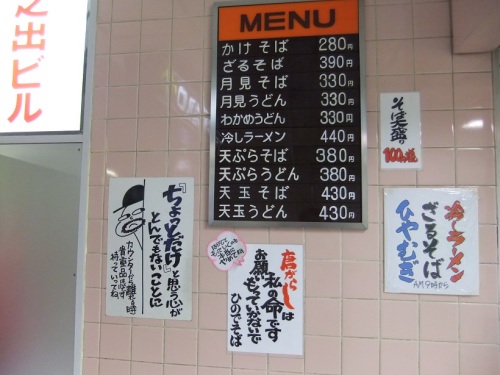 之出ビル
MENU
かけそば 280円
ざるそば 390円
月見そば 330円
月見うどん 330円
わかめうどん 330円
冷しラーメン 440円
天ぷらそば 380円
天ぷらうどん 380円
天玉そば 430円
天玉うどん 430円
そば大盛り
100円増
冷しラーメン
ざるそば
ひやむぎ
AM9時から
『ちょっとだけ』と思う心が
とんでもないことに
カウンターから離れる時
貴重品必ず
持っていってね。
唐がらしは
私の命です
お願いもっていかないで
ひのでそば